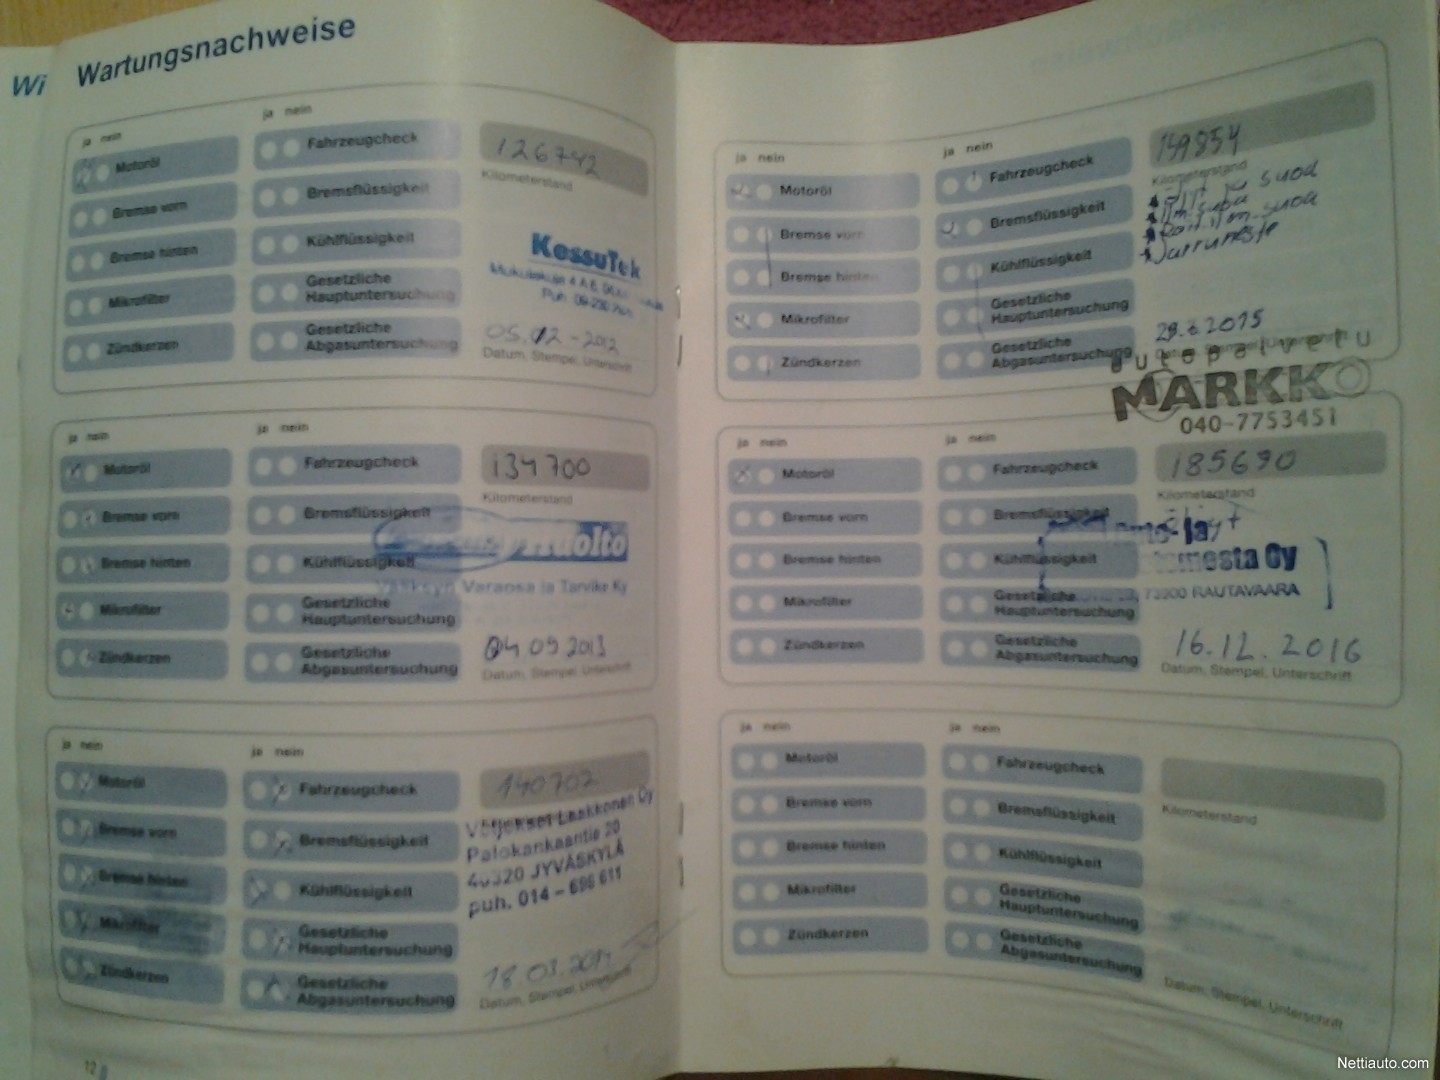 Wi
Wartungsnachweise
ja nein
ja nein
Motoröl
Fahrzeugcheck
126742
Kilometerstand
Bremse vorn
Bremsflüssigkeit
Bremse hinten
Kühlflüssigkeit
KessuTek
Mikrofilter
Gesetzliche
Hauptuntersuchung
Puh.
Zündkerzen
Gesetzliche
Abgasuntersuchung
05.12-2012
Datum, Stempel, Unterschrift
ja nein
ja nein
Motoröl
Fahrzeugcheck
134700
Kilometerstand
Bremse vorn
Bremsflüssigkeit
Bremse hinten
Kühlflüssigkeit
Huolto
Varaosa ja Tarvike Ky
Mikrofilter
Gesetzliche
Hauptuntersuchung
Zündkerzen
Gesetzliche
Abgasuntersuchung
04 09 2013
Datum, Stempel, Unterschrift
ja nein
ja nein
Motoröl
Fahrzeugcheck
140702
Bremse vorn
Bremsflüssigkeit
Veljekset Laakkonen Oy
Palokankaantie 20
40320 JYVÄSKYLÄ
puh. 014 – 696 611
Bremse hinten
Kühlflüssigkeit
Mikrofilter
Gesetzliche
Hauptuntersuchung
Zündkerzen
Gesetzliche
Abgasuntersuchung
18.03.2014
Datum, Stempel, Unterschrift
12
ja nein
ja nein
Motoröl
Fahrzeugcheck
159854
Kilometerstand
Bremse vorn
Bremsflüssigkeit
Öljyt ja suod
ilm.suod
Rait.ilm.suod
Jarruneste
Bremse hinten
Kühlflüssigkeit
Mikrofilter
Gesetzliche
Hauptuntersuchung
Zündkerzen
Gesetzliche
Abgasuntersuchung
29.3.2015
Datum, Stempel, Unterschrift
autopalvelu
MARKKO
040-7753451
ja nein
ja nein
Motoröl
Fahrzeugcheck
185690
Kilometerstand
Bremse vorn
Bremsflüssigkeit
Öljyt
Bremse hinten
Kühlflüssigkeit
Oy
73900 RAUTAVAARA
Mikrofilter
Gesetzliche
Hauptuntersuchung
Zündkerzen
Gesetzliche
Abgasuntersuchung
16.12.2016
Datum, Stempel, Unterschrift
ja nein
ja nein
Motoröl
Fahrzeugcheck
Kilometerstand
Bremse vorn
Bremsflüssigkeit
Bremse hinten
Kühlflüssigkeit
Mikrofilter
Gesetzliche
Hauptuntersuchung
Zündkerzen
Gesetzliche
Abgasuntersuchung
Datum, Stempel, Unterschrift
Nettiauto.com